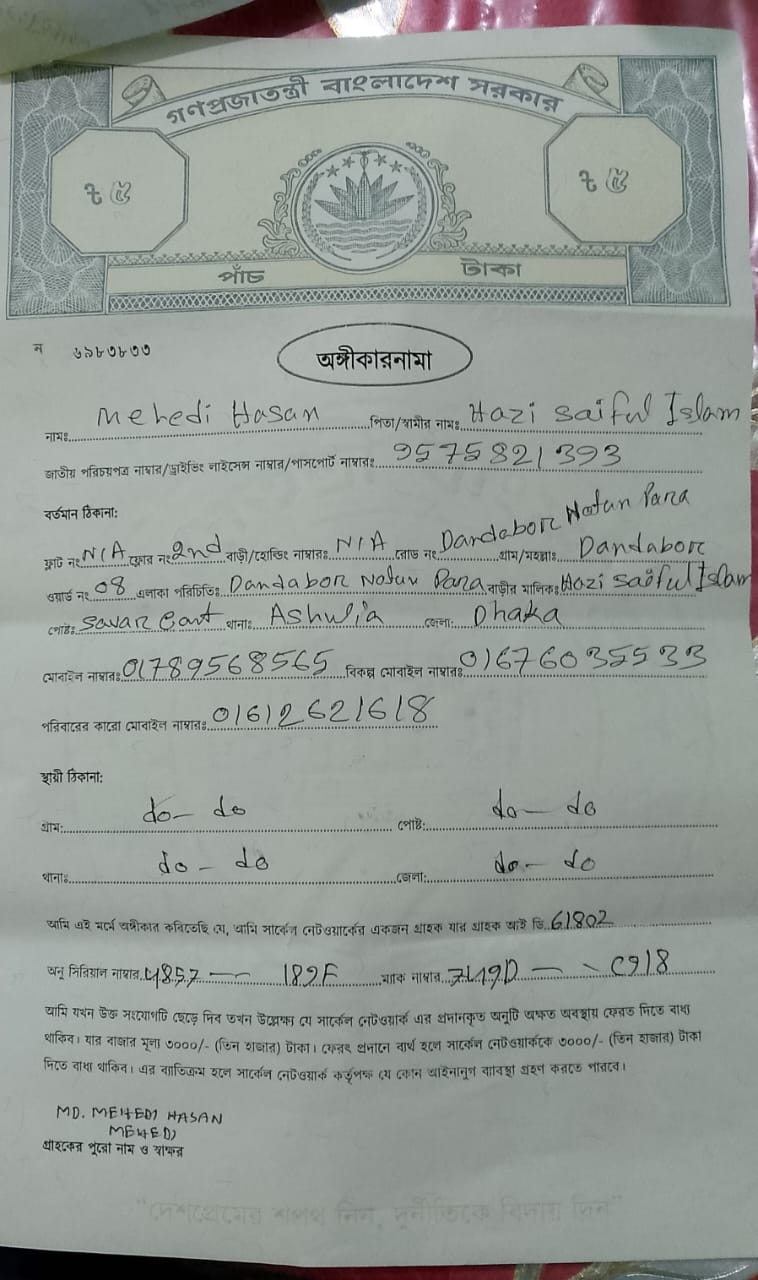 গণপ্রজাতন্ত্রী বাংলাদেশ সরকার
৳ ৫ ৳ ৫
পাঁচ টাকা
ন ৬৯৮৩৮৩৩
অঙ্গীকারনামা
নামঃ Mehedi Hasan পিতা/স্বামীর নামঃ Hazi Saiful Islam
জাতীয় পরিচয়পত্র নাম্বার/ড্রাইভিং লাইসেন্স নাম্বার/পাসপোর্ট নাম্বারঃ 9575821393
বর্তমান ঠিকানা:
ফ্লাট নং N/A ফ্লোর নং 2nd বাড়ী/হোল্ডিং নাম্বারঃ N/A রোড নং Dandabor Notun Para গ্রাম/মহল্লাঃ Dandabor
ওয়ার্ড নং 08 এলাকা পরিচিতিঃ Dandabor Notun Para বাড়ীর মালিকঃ Hazi Saiful Islam
পোষ্টঃ Savar Cant থানাঃ Ashulia জেলা: Dhaka
মোবাইল নাম্বারঃ 01789568565 বিকল্প মোবাইল নাম্বারঃ 01676035533
পরিবারের কারো মোবাইল নাম্বারঃ 01612621618
স্থায়ী ঠিকানা:
গ্রাম: do - do পোষ্ট: do - do
থানাঃ do - do জেলা: do - do
আমি এই মর্মে অঙ্গীকার করিতেছি যে, আমি সার্কেল নেটওয়ার্কের একজন গ্রাহক যার গ্রাহক আই ডি 61802
অনু সিরিয়াল নাম্বার 4857 — 189F ম্যাক নাম্বার 7L19D — C918
আমি যখন উক্ত সংযোগটি ছেড়ে দিব তখন উল্লেক্ষ্য যে সার্কেল নেটওয়ার্ক এর প্রদানকৃত অনুটি অক্ষত অবস্থায় ফেরত দিতে বাধ্য
থাকিব। যার বাজার মূল্য ৩০০০/- (তিন হাজার) টাকা। ফেরৎ প্রদানে ব্যর্থ হলে সার্কেল নেটওয়ার্ককে ৩০০০/- (তিন হাজার) টাকা
দিতে বাধ্য থাকিব। এর ব্যতিক্রম হলে সার্কেল নেটওয়ার্ক কর্তৃপক্ষ যে কোন আইনানুগ ব্যবিস্থা গ্রহণ করতে পারবে।
MD. MEHEDI HASAN
MEHEDI
গ্রাহকের পুরো নাম ও স্বাক্ষর
"দেশপ্রেমের শপথ নিন, দুর্নীতিকে বিদায় দিন"